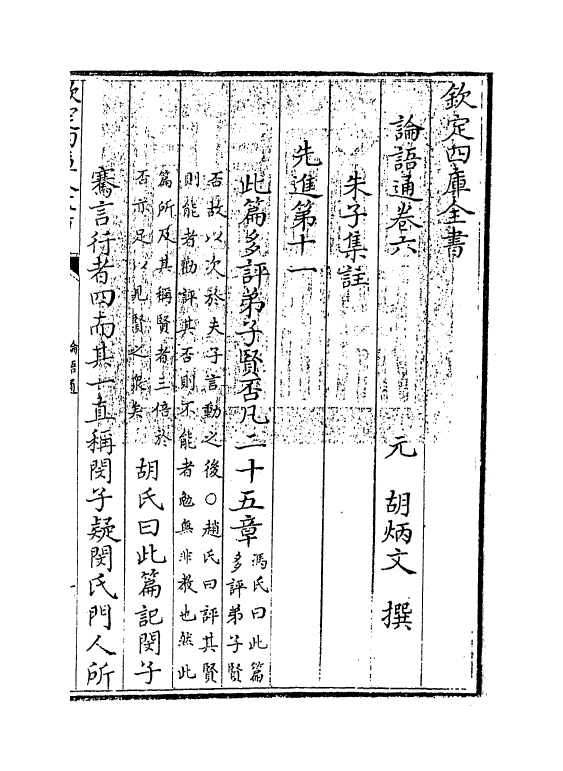 欽定四庫全書
論語通卷六
元 胡炳文 撰
朱子集註
先進第十一
此篇多評弟子賢否凡二十五章
馮氏曰此篇
多評弟子賢
否故以次於夫子言動之後○趙氏曰評其賢
則能者勸評其否則不能者勉無非教也然此
篇所及其稱賢者三倍於
否亦足以見賢之衆矣
胡氏曰此篇記閔子
騫言行者四而其一直稱閔子疑閔氏門人所
論語通